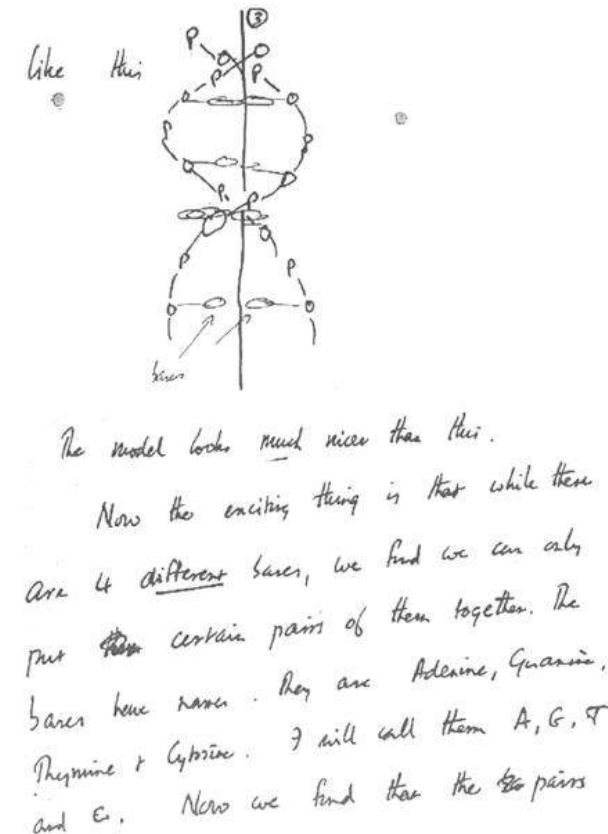 ③
like this
P O O
P P
O O
P P
O O
P P
O
P P
O O
bases
The model looks much nicer than this.
Now the exciting thing is that while there
are 4 different bases, we find we can only
put certain pairs of them together. The
bases have names. They are Adenine, Guanine,
Thymine & Cytosine. I will call them A, G, T
and C. Now we find that the pairs